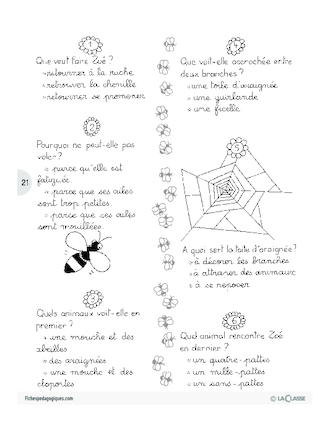 1
Que veut faire Zoé ?
retourner à la ruche
retrouver la chenille
retourner se promener
2
Pourquoi ne peut-elle pas
voler ?
parce qu'elle est
fatiguée.
parce que ses ailes
sont trop petites.
parce que ses ailes
sont mouillées.
3
Quels animaux voit-elle en
premier ?
une mouche et des
abeilles
des araignées
une mouche et des
cloportes
4
Que voit-elle accrochée entre
deux branches ?
une toile d'araignée
une guirlande
une ficelle
5
A quoi sert la toile d'araignée ?
à décorer les branches
à attraper des animaux
à se reposer
6
Quel animal rencontre Zoé
en dernier ?
un quatre-pattes
un mille-pattes
un sans-pattes
21
Fichespedagogiques.com
© LA CLASSE